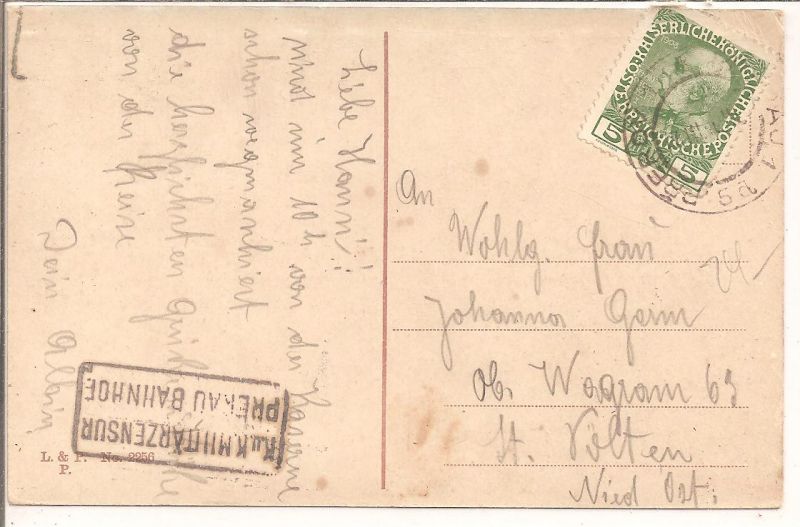 Liebe Hanni!
sind um 10h von der Kaserne
schon wegmarschiert
die herzlichsten Grüße
von der Reise
Dein Albin
K.u.K. MILITÄRZENSUR
PRERAU BAHNHOF
L. & P. No. 2256
P.
KAISERLICHE KÖNIGLICHE ÖSTERREICHISCHE POST
1908
5 5
PRERAU 1
An
Wohlg. Frau
Johanna Germ
Ob. Wagram 63
St. Pölten
Nied Öst.